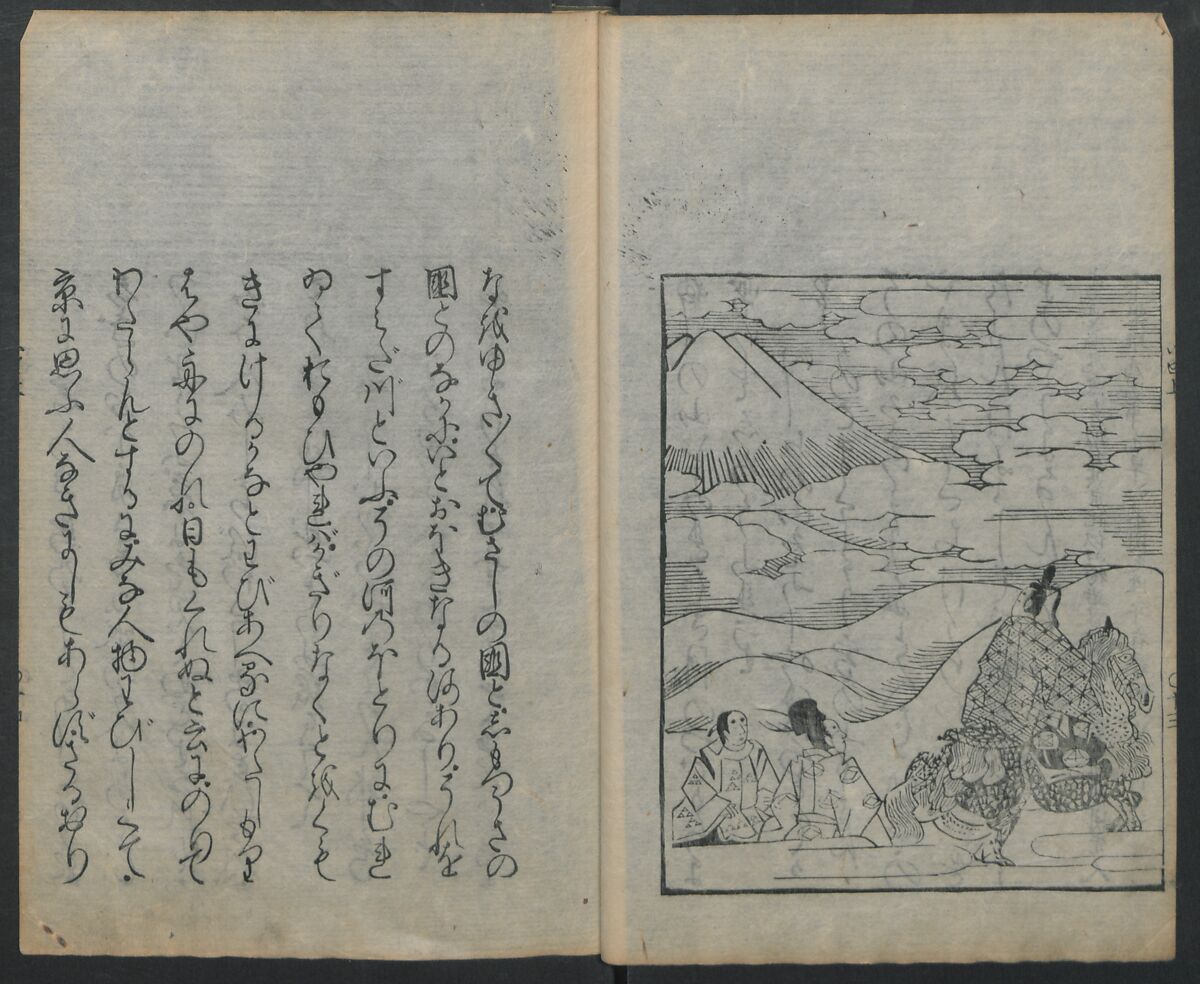 なをゆき〳〵てむさしの國としもつふさの
國とのなかにいとおほきなる河ありそれを
すみだ川といふその河のほとりにむれ
ゐておもひやればかぎりなくとをくも
きにけるかなとわびあへるにわたしもり
はや舟にのれ日もくれぬと云にのりて
わたらんとするにみな人物わびしくて
京に思ふ人なきにしもあらずさるおり